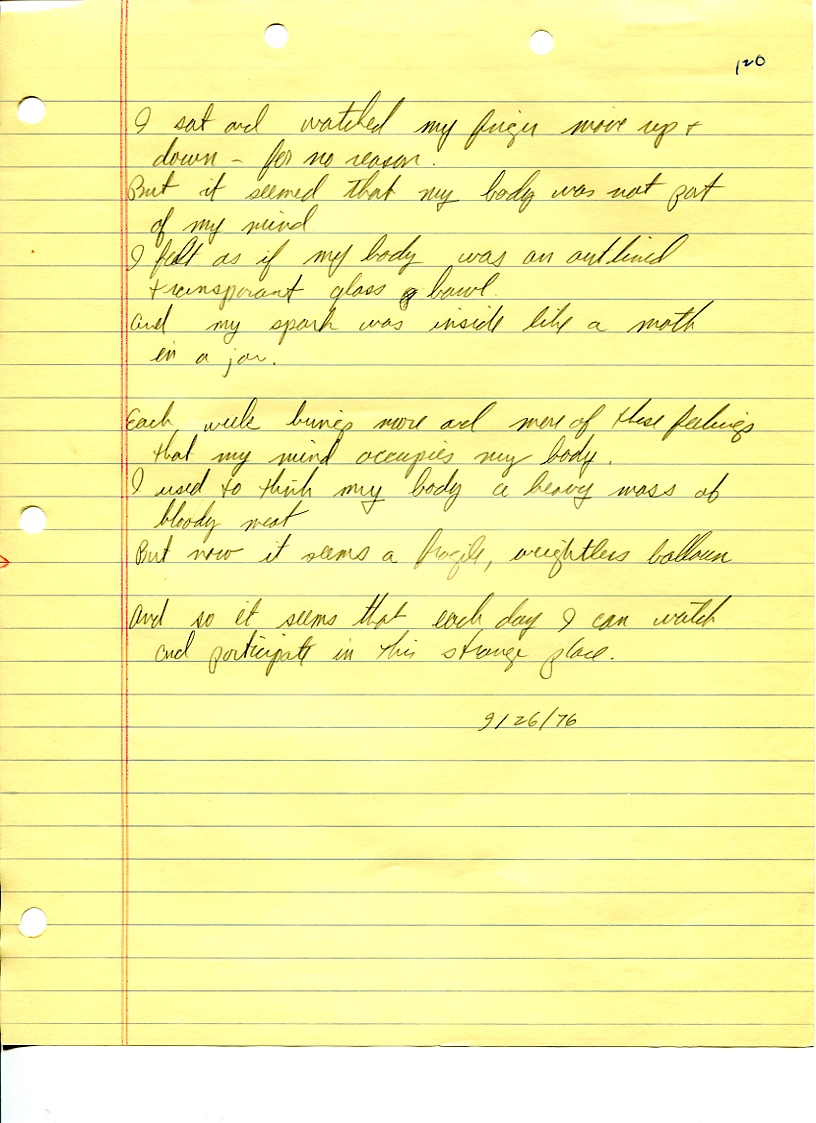 120
I sat and watched my finger move up +
down - for no reason.
But it seemed that my body was not part
of my mind
I felt as if my body was an outlined
transparant glass bowl.
And my spark was inside like a moth
in a jar.
Each week brings more and more of these feelings
that my mind occupies my body.
I used to think my body a heavy mass of
bloody meat
But now it seems a fragile, weightless balloun
And so it seems that each day I can watch
and participate in this strange place.
9/26/76